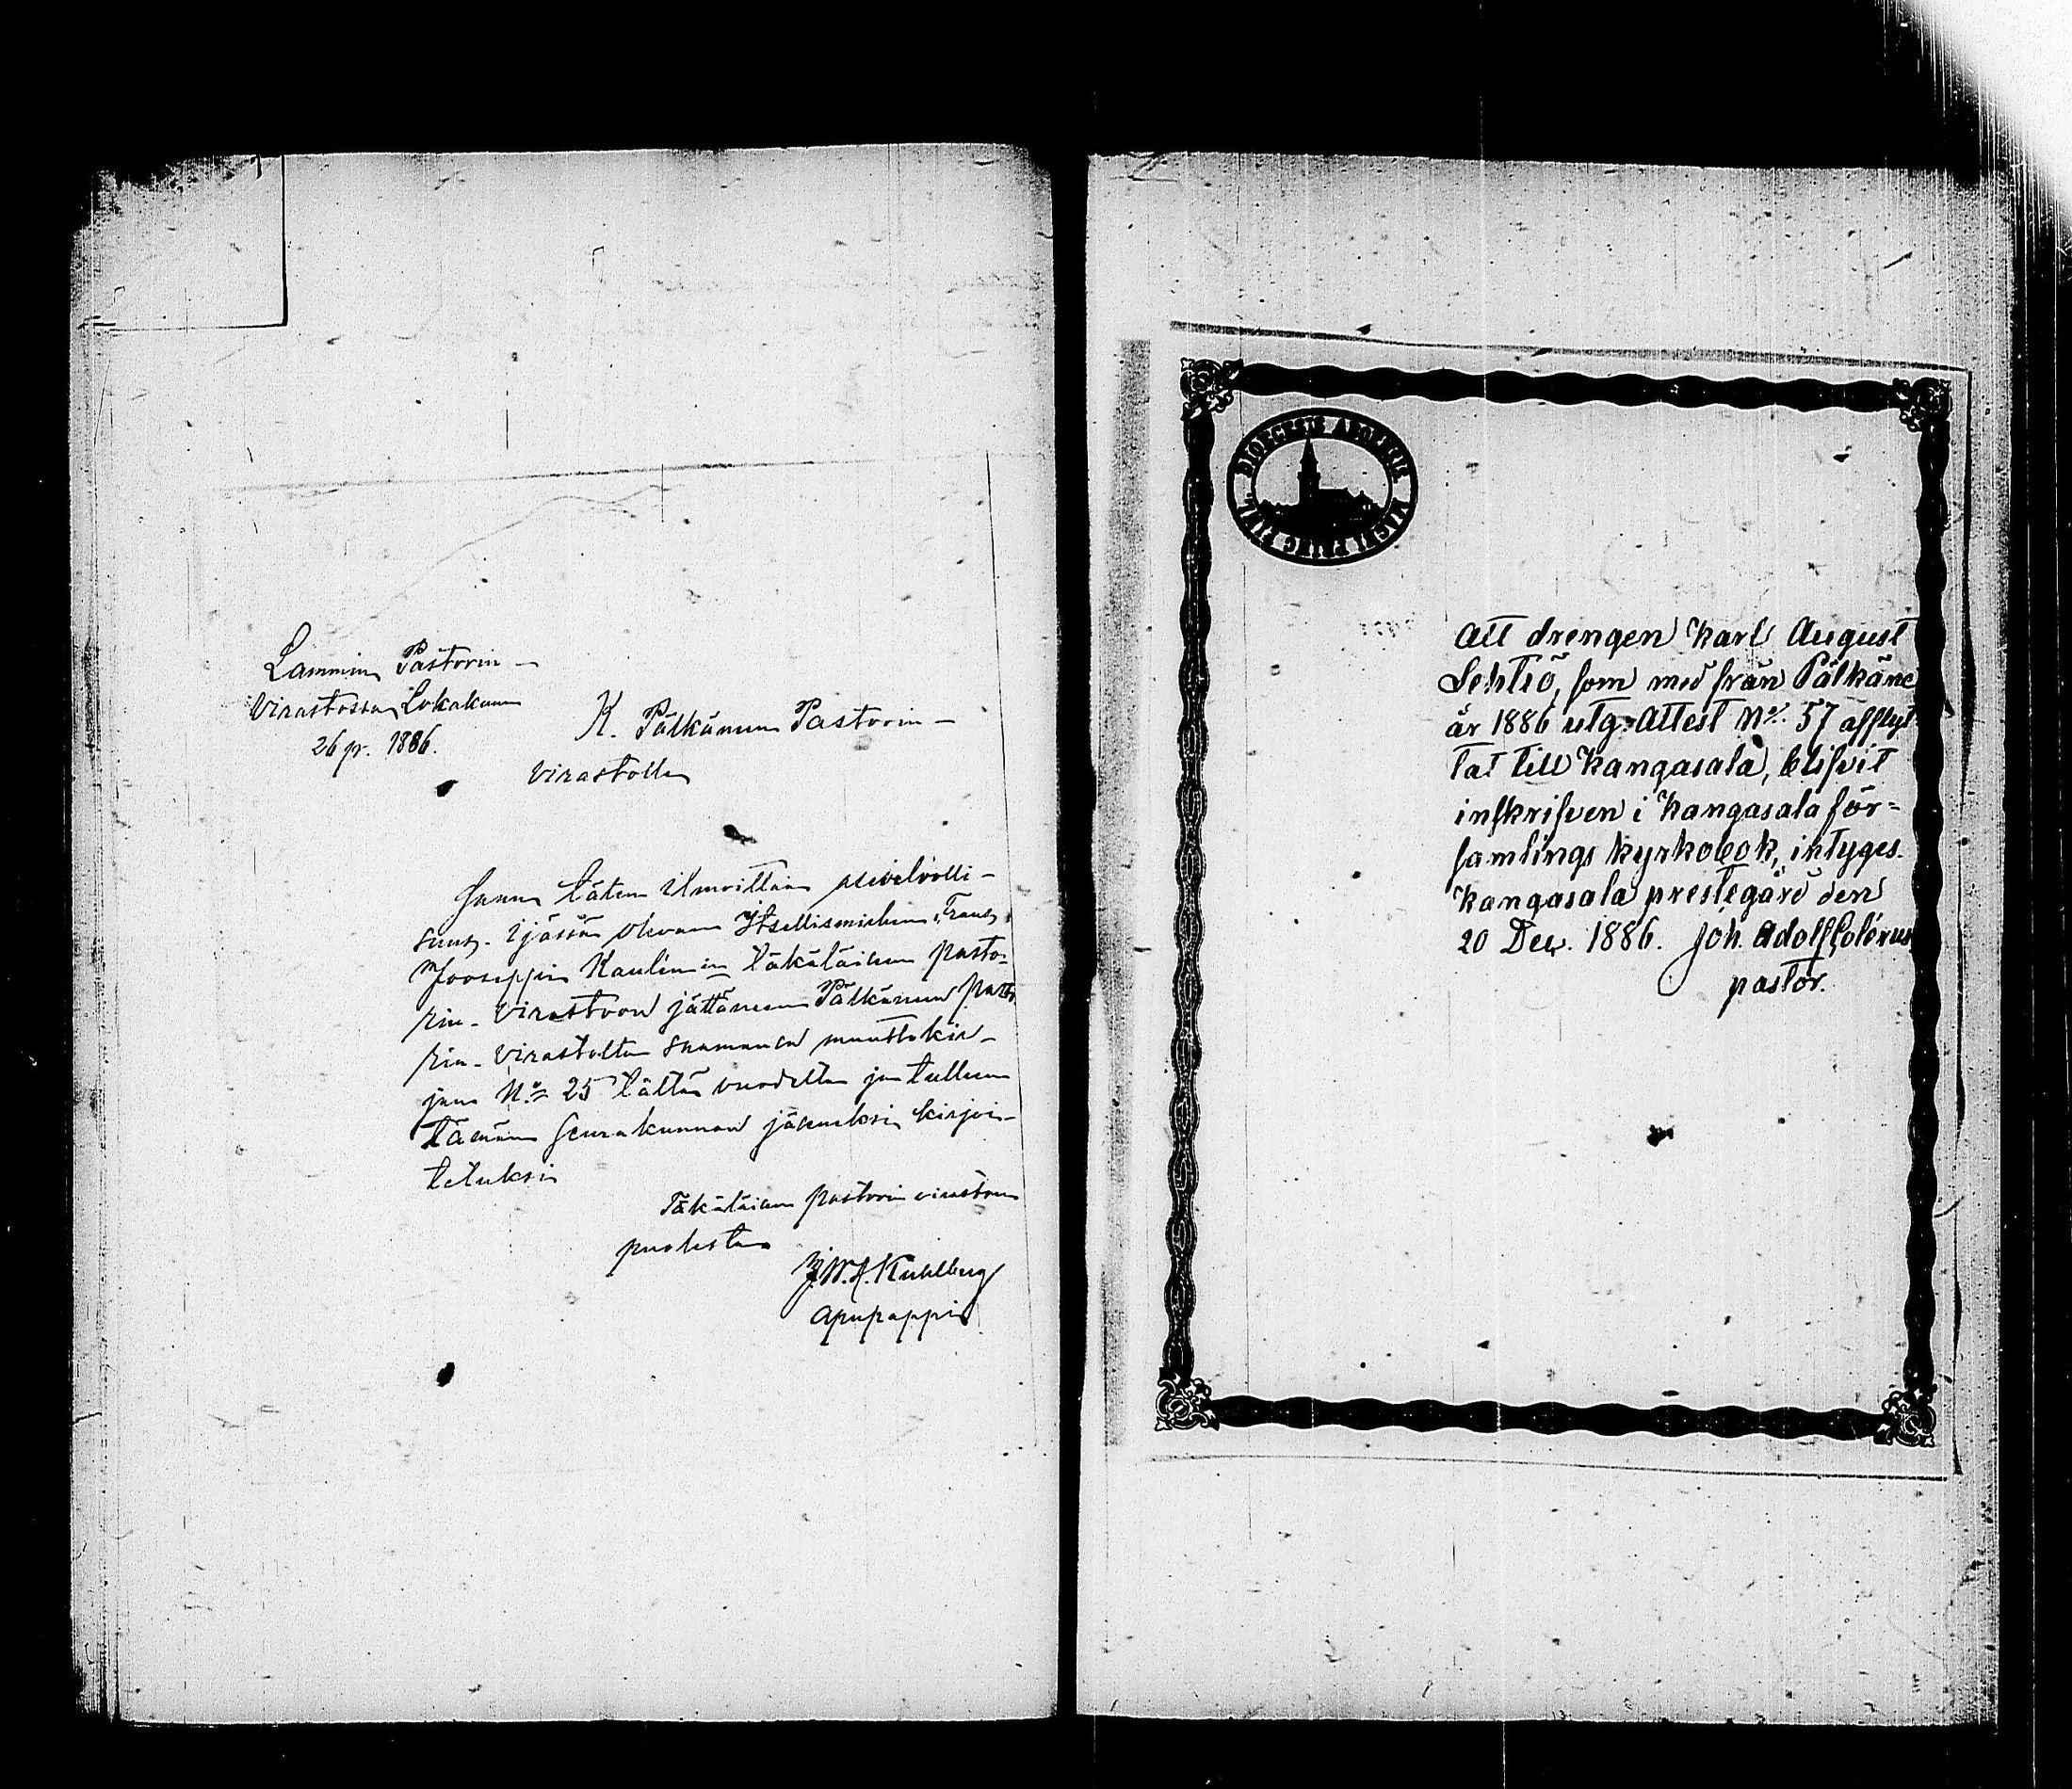 Lammin Pastorin-
Virastossa, Lokakuun
26 p. 1886.
K. Pälkäneen Pastorin-
Virastolle
Saan täten ilmoittaa asevelvolli-
suus-ijässä olevan Itsellismiehen, Frans
Jooseppi Kaulinin täkäläiseen pasto-
rin-virastoon jättäneen Pälkäneen pasto
rin-virastolta saamansa muuttokir-
jan No. 25 tältä vuodelta ja tulleen
tämän seurakunnan jäseneksi kirjoi-
tetuksi
Täkäläisen pastorin viraston
puolesta
J.W.A. Kuhlberg
apupappi
DIOECESIS ABOENSIS
Att drengen Karl August
Lehtiö, som med från Pälkäne
år 1886 utg. Attest No. 57 afflyt
tat till Kangasala, blifvit
inskrifven i Kangasala för=
samlings kyrkobok, intyges.
Kangasala prestegård den
20 Dec. 1886. Joh. Adolf Colérus
pastor.